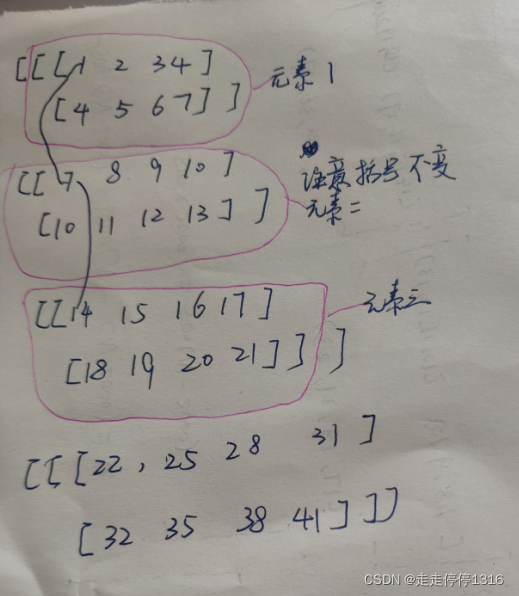 [[[1 2 3 4]
元素1
[4 5 6 7]]
[[7 8 9 10]
注意括号不变
[10 11 12 13]]
元素二
[[14 15 16 17]
元素三
[18 19 20 21]]]
[[[22, 25 28 31]
[32 35 38 41]]]
CSDN @走走停停1316